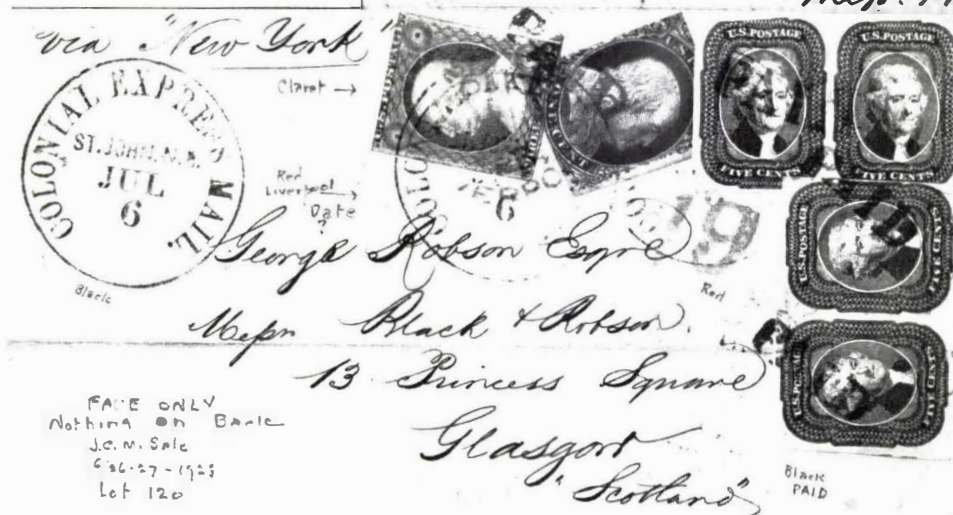 via "New York"
COLONIAL EXPRESS MAIL.
ST. JOHN. N.B.
JUL
6
Black
Claret →
Red
Liverpool →
Date
?
6
U.S. POSTAGE
FIVE CENTS
U.S. POSTAGE
FIVE CENTS
U.S. POSTAGE
FIVE CENTS
U.S. POSTAGE
FIVE CENTS
19
Red
George Robson Esqre
Messrs Black & Robson.
13 Princess Square
Glasgow
"Scotland"
FACE ONLY
Nothing on Back
J.C.M. Sale
Lot 120
Black
PAID